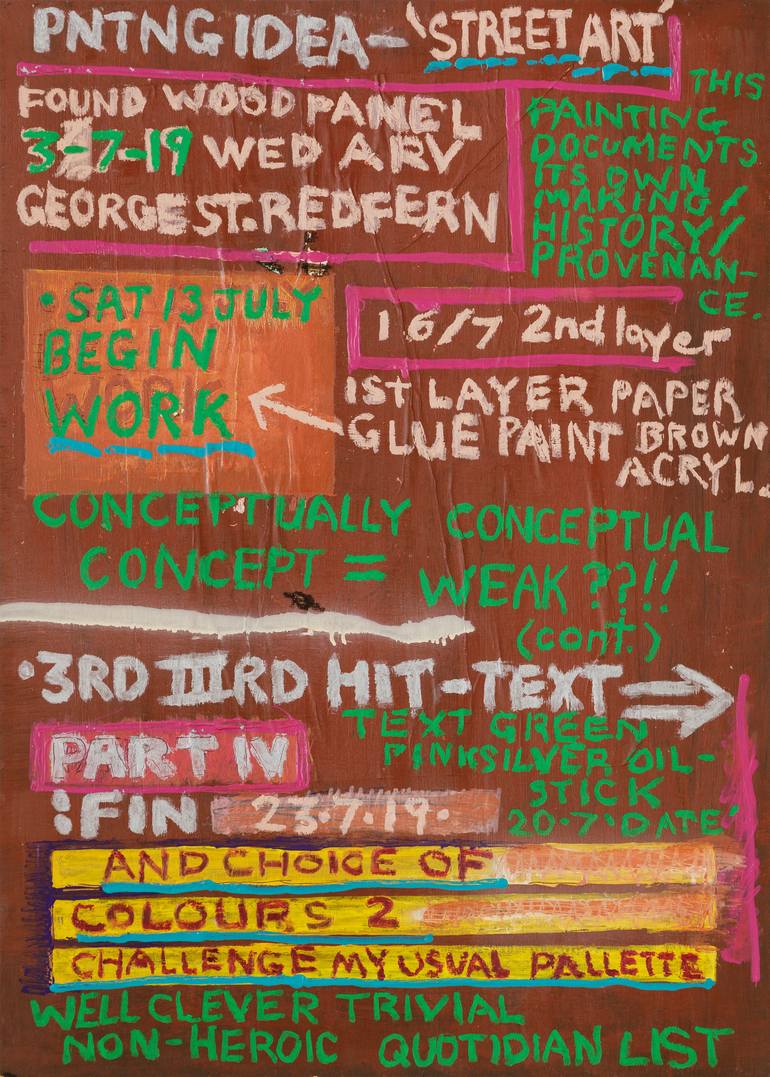 PNTNG IDEA- 'STREET ART'
FOUND WOOD PANEL
3-7-19 WED ARV
GEORGE ST. REDFERN
THIS
PAINTING
DOCUMENTS
ITS OWN
MAKING/
HISTORY/
PROVENAN-
CE.
• SAT 13 JULY
BEGIN
WORK
16/7 2nd layer
1ST LAYER PAPER
GLUE PAINT BROWN
ACRYL.
CONCEPTUALLY CONCEPTUAL
CONCEPT = WEAK ??!!
(cont.)
•3RD IIIRD HIT-TEXT
TEXT GREEN
PINK SILVER OIL-
STICK
20.7 'DATE'
PART IV
:FIN 23.7.19.
AND CHOICE OF
COLOURS 2
CHALLENGE MY USUAL PALLETTE
WELL CLEVER TRIVIAL
NON-HEROIC QUOTIDIAN LIST